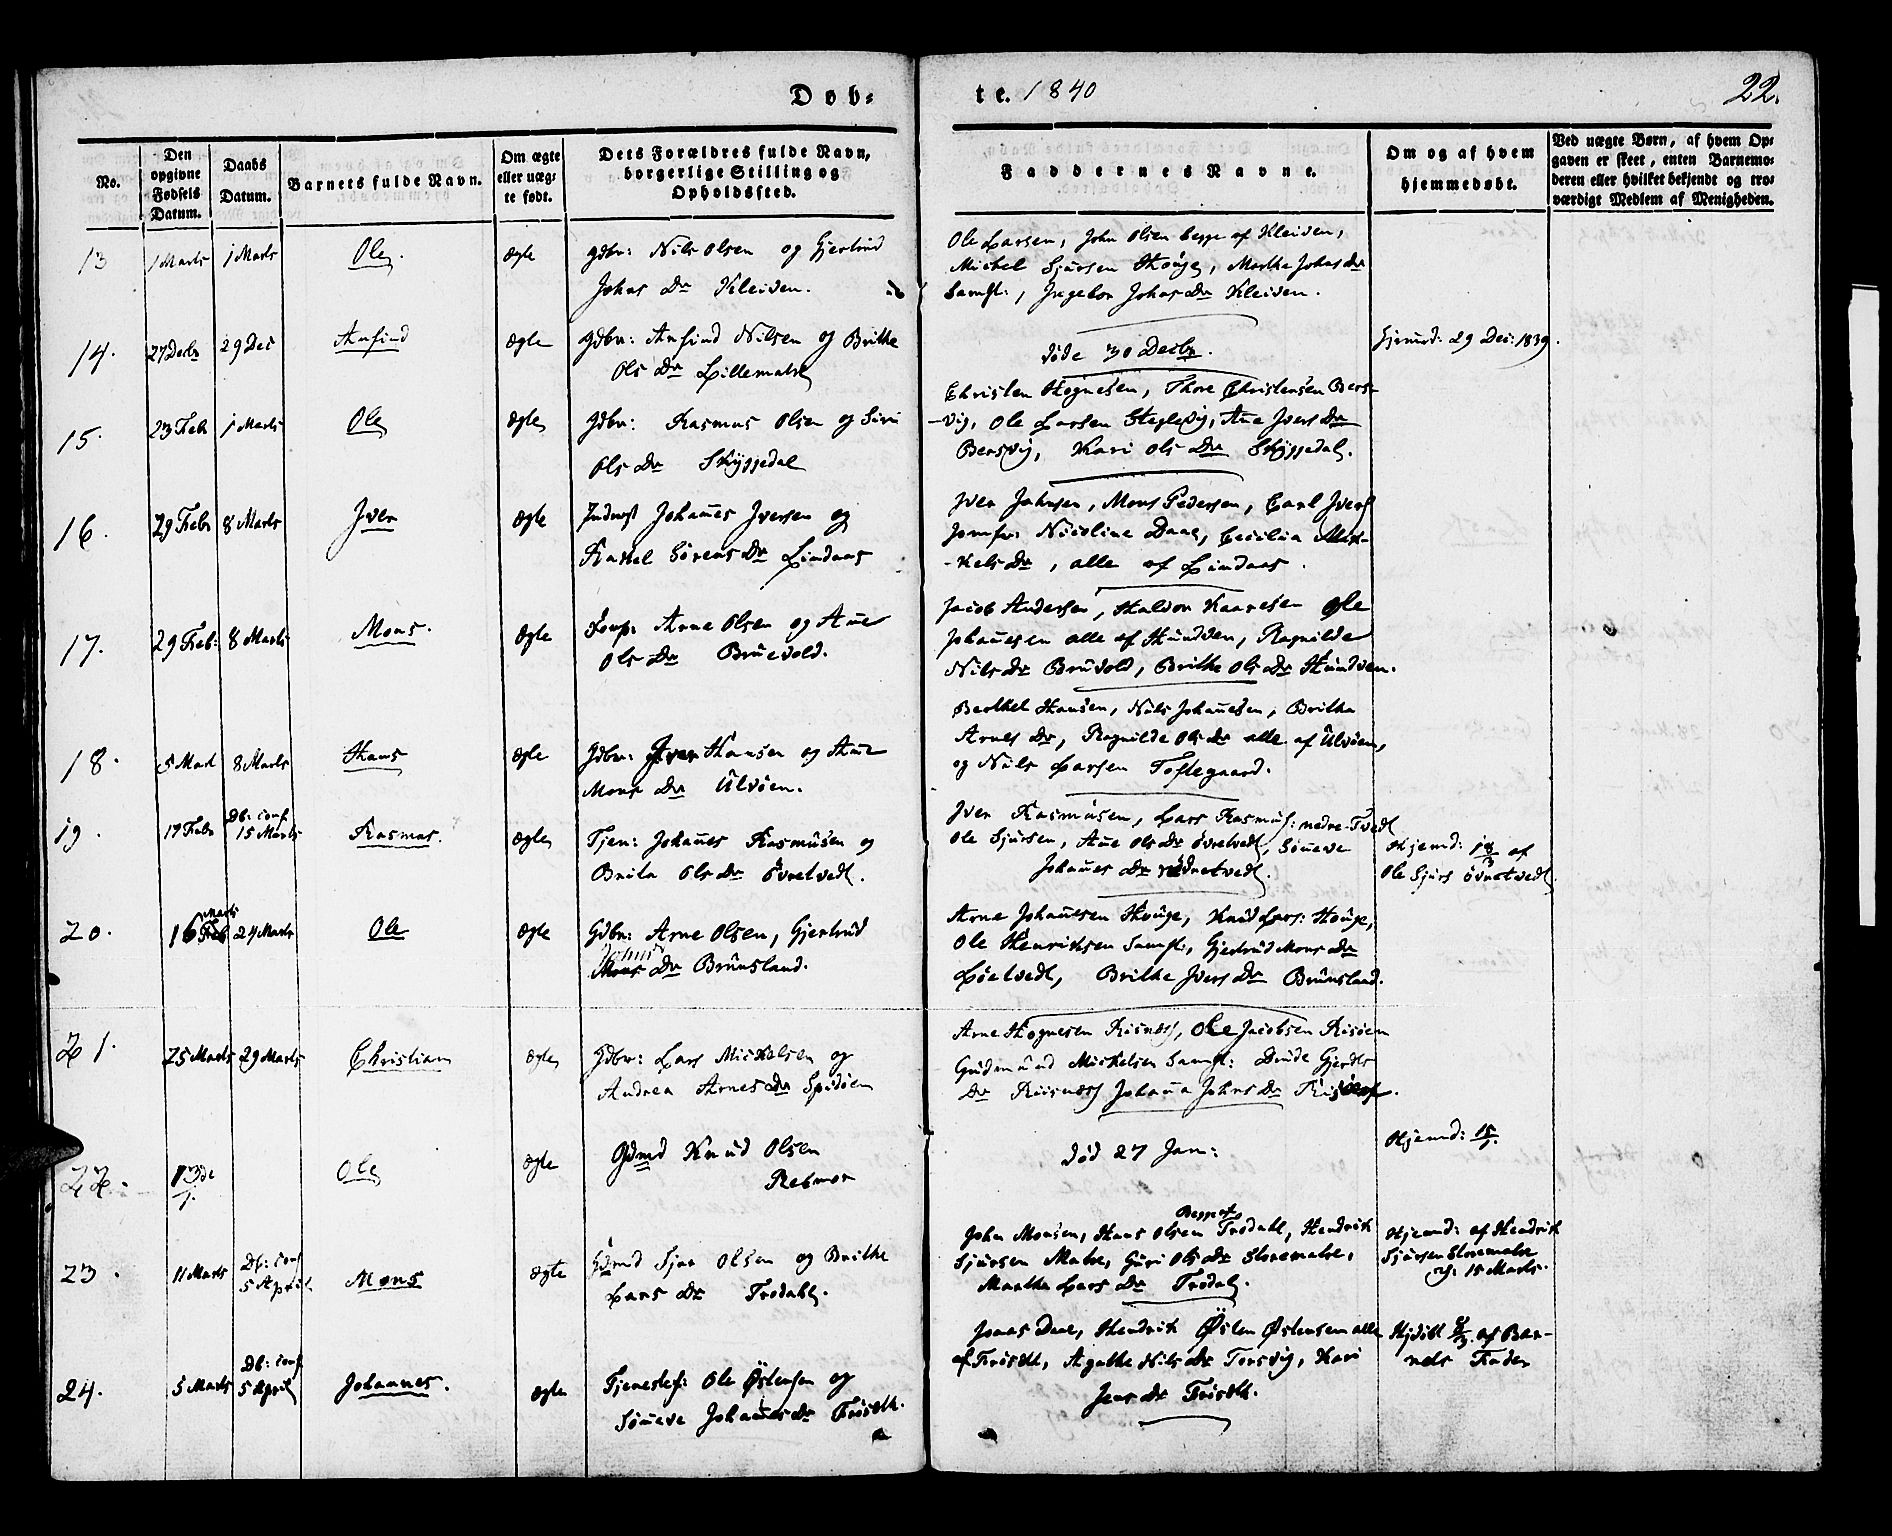 Døb-
te. 1840
22.
No.
Den opgivne Fødsels Datum.
Daabs Datum.
Barnets fulde Navn.
Om ægte eller uæg- te født.
Dets Forældres fulde Navn, borgerlige Stilling og Opholdssted.
Faddernes Navne.
Om og af hvem hjemmedøbt.
Ved uægte Børn, af hvem Op- gaven er skeet, enten Barnemo- deren eller hvilket bekjendt og tro- værdigt Medlem af Menigheden.
13 1 Marts 1 Marts Ole. ægte Gdbr: Nils Olsen og Gjertrud
Johns Dr Kleiven.
Ole Larsen, John Olsen begge af Kleiven,
Michel Sjursen Houge, Marthe Johns Dr
Samst:, Ingebor Johns Dr Kleiven.
14. 27 Decbr 29 Dec Anfind ægte Gdbr: Anfind Nilsen og Brithe
Ols Dr Lillematre
døde 30 Decbr.
Hjemd: 29 Dec: 1839.
15. 23 Febr 1 Marts Ole ægte Gdbr: Rasmus Olsen og Siri
Ols Dr Skyggedal
Christen Hognesen, Thore Christensen Bers-
-vig, Ole Larsen Steglevig, Ane Ivers Dr
Bersvig, Kari Ols Dr Skyggedal.
16. 29 Febr 8 Marts Iver ægte Inderst Johannes Iversen og
Rakel Sørens Dr Lindaas
Iver Johnsen, Mons Pedersen, Carl Ivers
Jomfr: Nicoline Daae, Cecilia Mik-
-kels Dr, alle af Lindaas.
17. 29 Feb: 8 Marts Mons. ægte Arne Olsen og Ane
Ols Dr Bruevold.
Jacob Andersen, Haldor Kaaresen Ole
Johanesen alle af Hundven, Ragnilde
Nils Dr Bruvold, Brithe Ols Dr Hundven.
18. 5 Mart 8 Marts Hans ægte Gdbr: Iver Hansen og Ane
Mons Dr Ulvøen.
Berthel Hansen, Nils Johanesen, Britha
Arnes Dr, Ragnilde Ols Dr alle af Ulvøen,
og Nils Larsen Toftegaard.
19. 17 Febr Db: conf. 15 Marts Rasmus. ægte Tjen: Johannes Rasmusen og
Brita Ols Dr Øvretvedt.
Iver Rasmusen, Lars Rasmus: nedre-Tvedt
Ole Sjursen, Ane Ols Dr Øvretvedt, Søneve
Johannes Dr nedretvedt.
Hjemd: 18/3 af
Ole Sjurs Øvretvedt.
20. 16 Marts 24 Marts Ole ægte Gdbr: Arne Olsen, Gjertrud
Dr Brunsland.
Arne Johannesen Houge, Knud Lars: Houge,
Ole Henriksen Samst:, Gjertrud Mons Dr
Løetvedt, Brithe Ivers Dr Brunsland.
21. 25 Marts 29 Marts Christian ægte Gdbr: Lars Mickelsen og
Andrea Arnes Dr Spidøen
Arne Hognesen Risnæs, Ole Jacobsen Risøen
Gudmund Mickelsen Samst: Drude Gjerts
Dr Riisnæs Johanna Johns Dr
22. 13de/1. Ole ægte Gdmd Knud Olsen
Rebnor
død 27 Jan:
Hjemd: 15/1.
23. 11 Marts Db: conf 5 April Mons ægte Gdmd Sjur Olsen og Brithe
Lars Dr Trodahl.
John Monsen, Hans Olsen Begge af Trodahl, Hendrik
Sjursen Matre, Guri Ols Dr Storematre,
Marthe Lars Dr Trodal.
Hjemd: af Hendrik
Sjursen Storematre
d: 15 Marts.
24. 5 Marts Db: conf 5 April Johannes. ægte Tjenestef: Ole Østensen og
Søneve Johannes Dr
Jonas Daae, Hendrik Østen Østensen alle
af Agathe Nils Dr Torsvig, Kari
Jens Dr
Hjdøbt 8/3 af Bar-
nets Fader